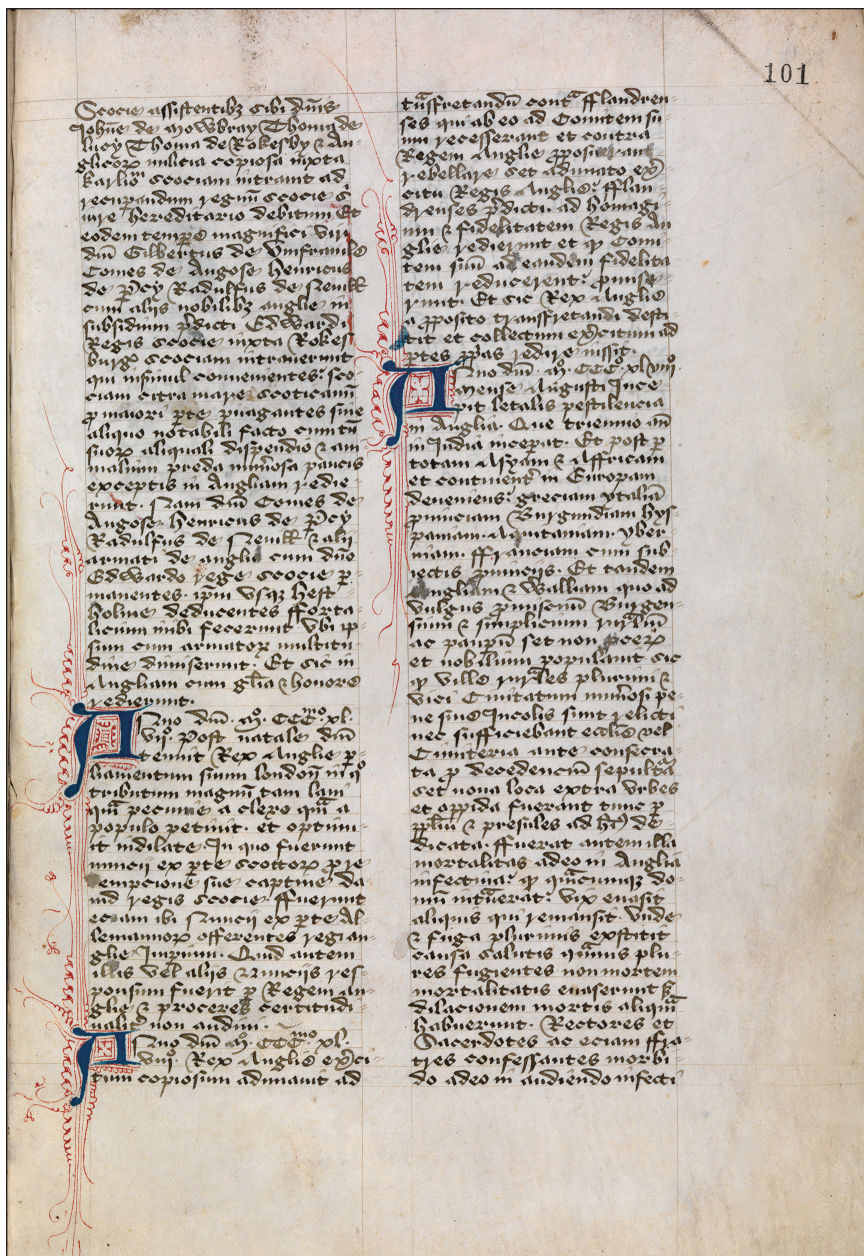 101
Scocie assistentibȝ sibi dn̄is
Joħne de Mowbray Thoma de
lucy Thoma de Rokesby & An
glicorꝝ milicia copiosa iuxta
karliom̄ scociam intrauit ad
recuperandum regnū scocie s̄
iure hereditario debitum Et
eodem tempe magnifici viri
dn̄i Gilbertus de Vmframile
Comes de Angose henricus
de ꝑcy Radulfus de Neuill
cum alijs nobilibȝ anglie in
subsidium p̄dicti Edwardi
Regis scocie iuxta Rokes
burgē scociam intrauerunt
qui insimul conuenientes sco-
ciam citra mare scoticanū
ꝓ maiori ꝑte ꝑuagantes sine
aliquo notabili facto cum tn̄
suorꝝ aliquali dispendio & ani
malium preda nūmosa paucis
exceptis in Angliam redie-
runt. Nam dn̄i Comes de
Angose henricus de ꝑcy
Radulfus de Neuill & alij
armati de anglia cum dn̄o
Edwardo rege scocie ꝑ-
manentes. ipm̄ vsqȝ hest
holme deducentes fforta-
licium inibi fecerunt vbi ip-
sum cum armatorꝝ multitu-
dine dimiserunt. Et sic in
Angliam cum gl̄ia & honore
redierunt.
Anno dn̄i. Mͦ. CCCmͦ. xl.
vijͦ. Post natale dn̄i
tenuit Rex Anglie ꝑ-
liamentum suum london̄ in qͦ
tributum magnū tam lani
qm̄ pecunie a clero qm̄ a
populo petiuit. et optinu-
it indilate. In quo fuerunt
nuncij ex ꝑte scottorꝝ ꝓ re-
dempcione sue captiue da-
uid regis scocie. ffuerunt
eciam ibi Nuncij ex ꝑte Al-
lemannorꝝ offerentes regi an-
glie Imꝑium. Quid autem
illis vel alijs Nuncijs res-
ponsum fuerit ꝑ Regem an-
glie & proceres certitudi-
naliter non audiui.
Anno dn̄i Mͦ. CCCmͦ. xl.
viijͦ. Rex Anglie ex̄ci-
tum copiosum adunauit ad
tn̄sfretandū contᵃ fflandren-
ses qui ab eo ad Comitem su-
um recesserant et contra
Regem Anglie ꝓposuerant
rebellare set adunato ex̄-
citu Regis Anglie fflan-
drenses p̄dicti. ad homagi-
um & fidelitatem Regis An
glie redierunt et qꝫ Comi-
tem suū ad eandem fidelita
tem reducerent. ꝓmise-
runt. Et sic Rex Anglie
a ꝓposito transfretandi desti-
tit et collectum ex̄citum ad
ꝑtes ꝓp̄as redire iussit.
Anno dn̄i. Mͦ. CCCͦ. xlviijͦ.
mense Augusti Ince-
pit letalis pestilencia
in Anglia. Que triennio an̄
in India inceꝑat. Et post ꝑ
totam Asyam & Affricam
et continent̄ in Europam
deueniens. greciam ytaliā
ꝓuinciam Burgundiam hys
paniam. Aquitaniam. yber-
niam. ffranciam cum sub-
iectis ꝓuincijs. Et tandem
Angliam & Walliam quo ad
vulgus ꝓmiscuū Burgen-
sium & simplicium ruraliū
ac pauꝑum set non ꝓcerꝝ
et nobilium populauit sic
qꝫ ville rurales plurimi &
vici Ciuitatum nūmosi pe-
ne sine Incolis sunt relicti
nec sufficiebant eccl̄ie vel
Cimiteria ante consecra-
ta ꝓ decedencium sepultᵃ
set noua loca extra vrbes
et oppida fuerant tunc ꝑ
ppl̄m & presules ad hoc de-
dicata. ffuerat autem illa
mortalitas adeo in Anglia
infectiua qꝫ qm̄cumqꝫ do-
mū intᵃuerat vix euasit
aliquis qui remansit. Vnde
& fuga plurimis exstitit
causa salutis qͣmuis plu-
res fugientes non mortem
mortalitatis euaserunt s̄
dilacionem mortis aliqm̄
habuerunt. Rectores et
Sacerdotes ac eciam ffra-
tres confessantes morbi-
do adeo in audiendo infecti